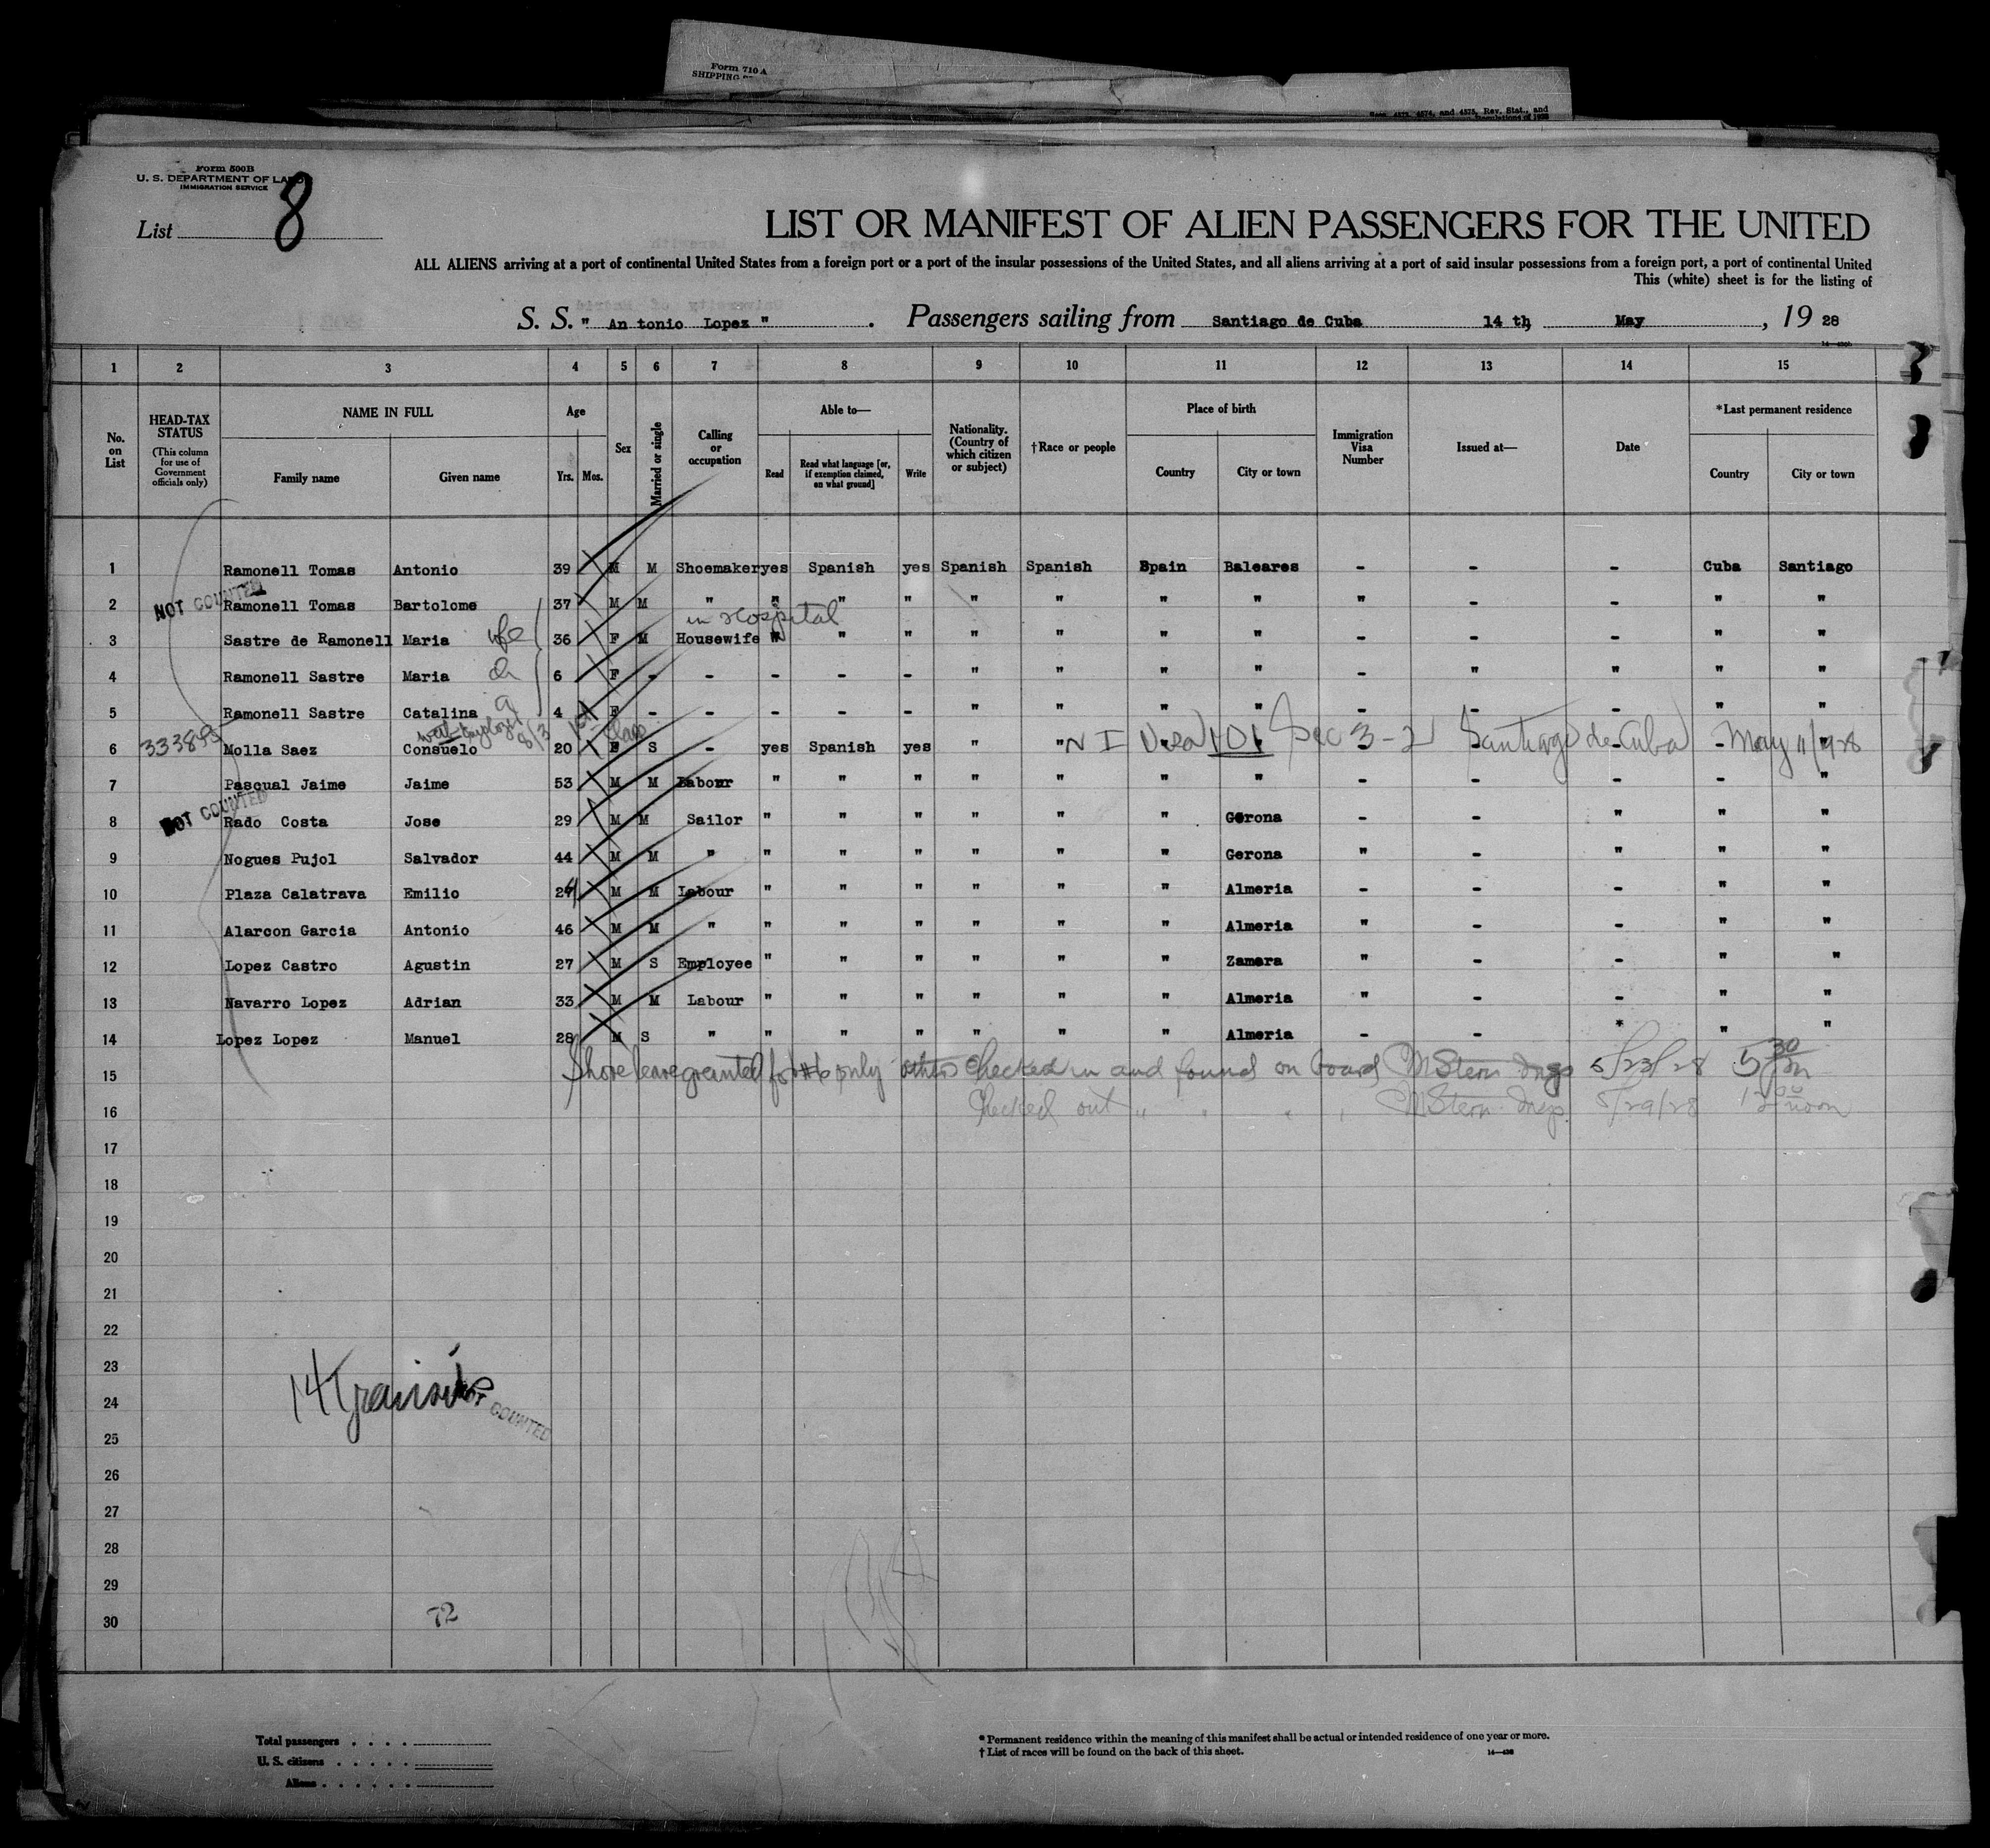 Form 710 A
SHIPPING
Secs. 4573, 4574, and 4575, Rev. Stat., and
Form 500B
U. S. DEPARTMENT OF LABOR
IMMIGRATION SERVICE
List 8
LIST OR MANIFEST OF ALIEN PASSENGERS FOR THE UNITED
ALL ALIENS arriving at a port of continental United States from a foreign port or a port of the insular possessions of the United States, and all aliens arriving at a port of said insular possessions from a foreign port, a port of continental United
This (white) sheet is for the listing of
S. S. " An tonio Lopez " . Passengers sailing from Santiago de Cuba 14 th, May , 19 28
1 2 3 4 5 6 7 8 9 10 11 12 13 14 15
No. on List HEAD-TAX STATUS (This column for use of Government officials only) NAME IN FULL Family name Given name Age Yrs. Mos. Sex Married or single Calling or occupation Able to— Read Read what language [or, if exemption claimed, on what ground] Write Nationality. (Country of which citizen or subject) †Race or people Place of birth Country City or town Immigration Visa Number Issued at— Date *Last permanent residence Country City or town
1 Ramonell Tomas Antonio 39 M M Shoemaker yes Spanish yes Spanish Spanish Spain Baleares - - - Cuba Santiago
NOT COUNTED
2 Ramonell Tomas Bartolome 37 M M " " " " " " " " " - - " "
in Hospital
3 Sastre de Ramonell Maria wfe 36 F M Housewife " " " " " " " - - - " "
4 Ramonell Sastre Maria 6 F - - - - - " " " " - " " " "
5 Ramonell Sastre Catalina 4 F - - - - - " " " " - - - " "
6 333895 Molla Saez Consuelo 20 F S - yes Spanish yes " " N I Visa 101 Sec 3-2 Santiago de Cuba - May 11/928
7 Pascual Jaime Jaime 53 M M Labour " " " " " " " - - - - "
NOT COUNTED
8 Rado Costa Jose 29 M M Sailor " " " " " " Gerona - - " " "
9 Nogues Pujol Salvador 44 M M " " " " " " " Gerona " - " " "
10 Plaza Calatrava Emilio 24 M M Labour " " " " " " Almeria - - - " "
11 Alarcon Garcia Antonio 46 M M " " " " " " " Almeria " - - " "
12 Lopez Castro Agustin 27 M S Employee " " " " " " Zamora " - - " "
13 Navarro Lopez Adrian 33 M M Labour " " " " " " Almeria " - - " "
14 Lopez Lopez Manuel 28 M S " " " " " " " Almeria - - " " "
15 Shore leave granted for #6 only others checked in and found on board M Stern Insp 5/23/28 5 30
16 Checked out " " " " M Stern Insp. 5/29/28 12 00 noon
17
18
19
20
21
22
23
14 Transits
24
NOT COUNTED
25
26
27
28
29
30
72
Total passengers . . . .
U. S. citizens . . . . .
Aliens . . . . . .
* Permanent residence within the meaning of this manifest shall be actual or intended residence of one year or more.
† List of races will be found on the back of this sheet.